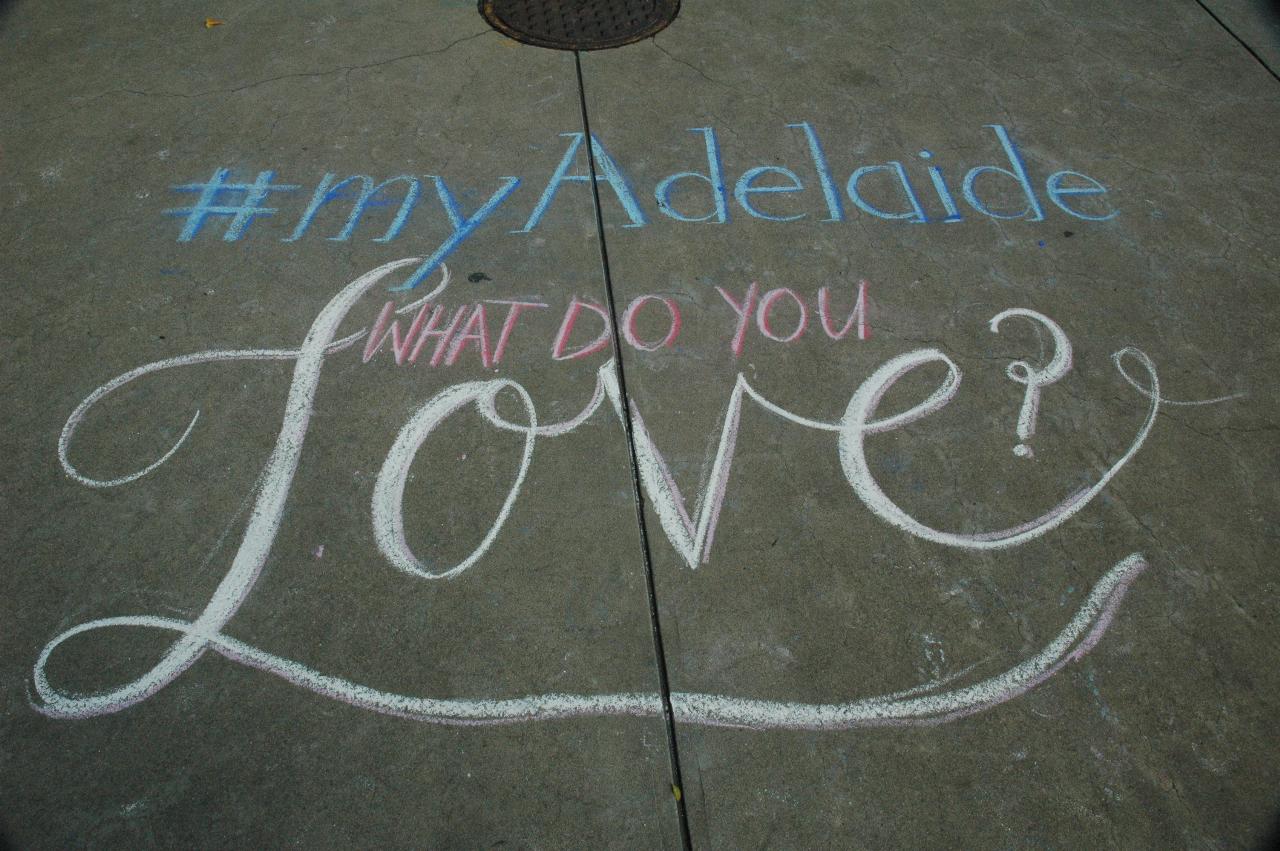 #myAdelaide
WHAT DO YOU
Love?